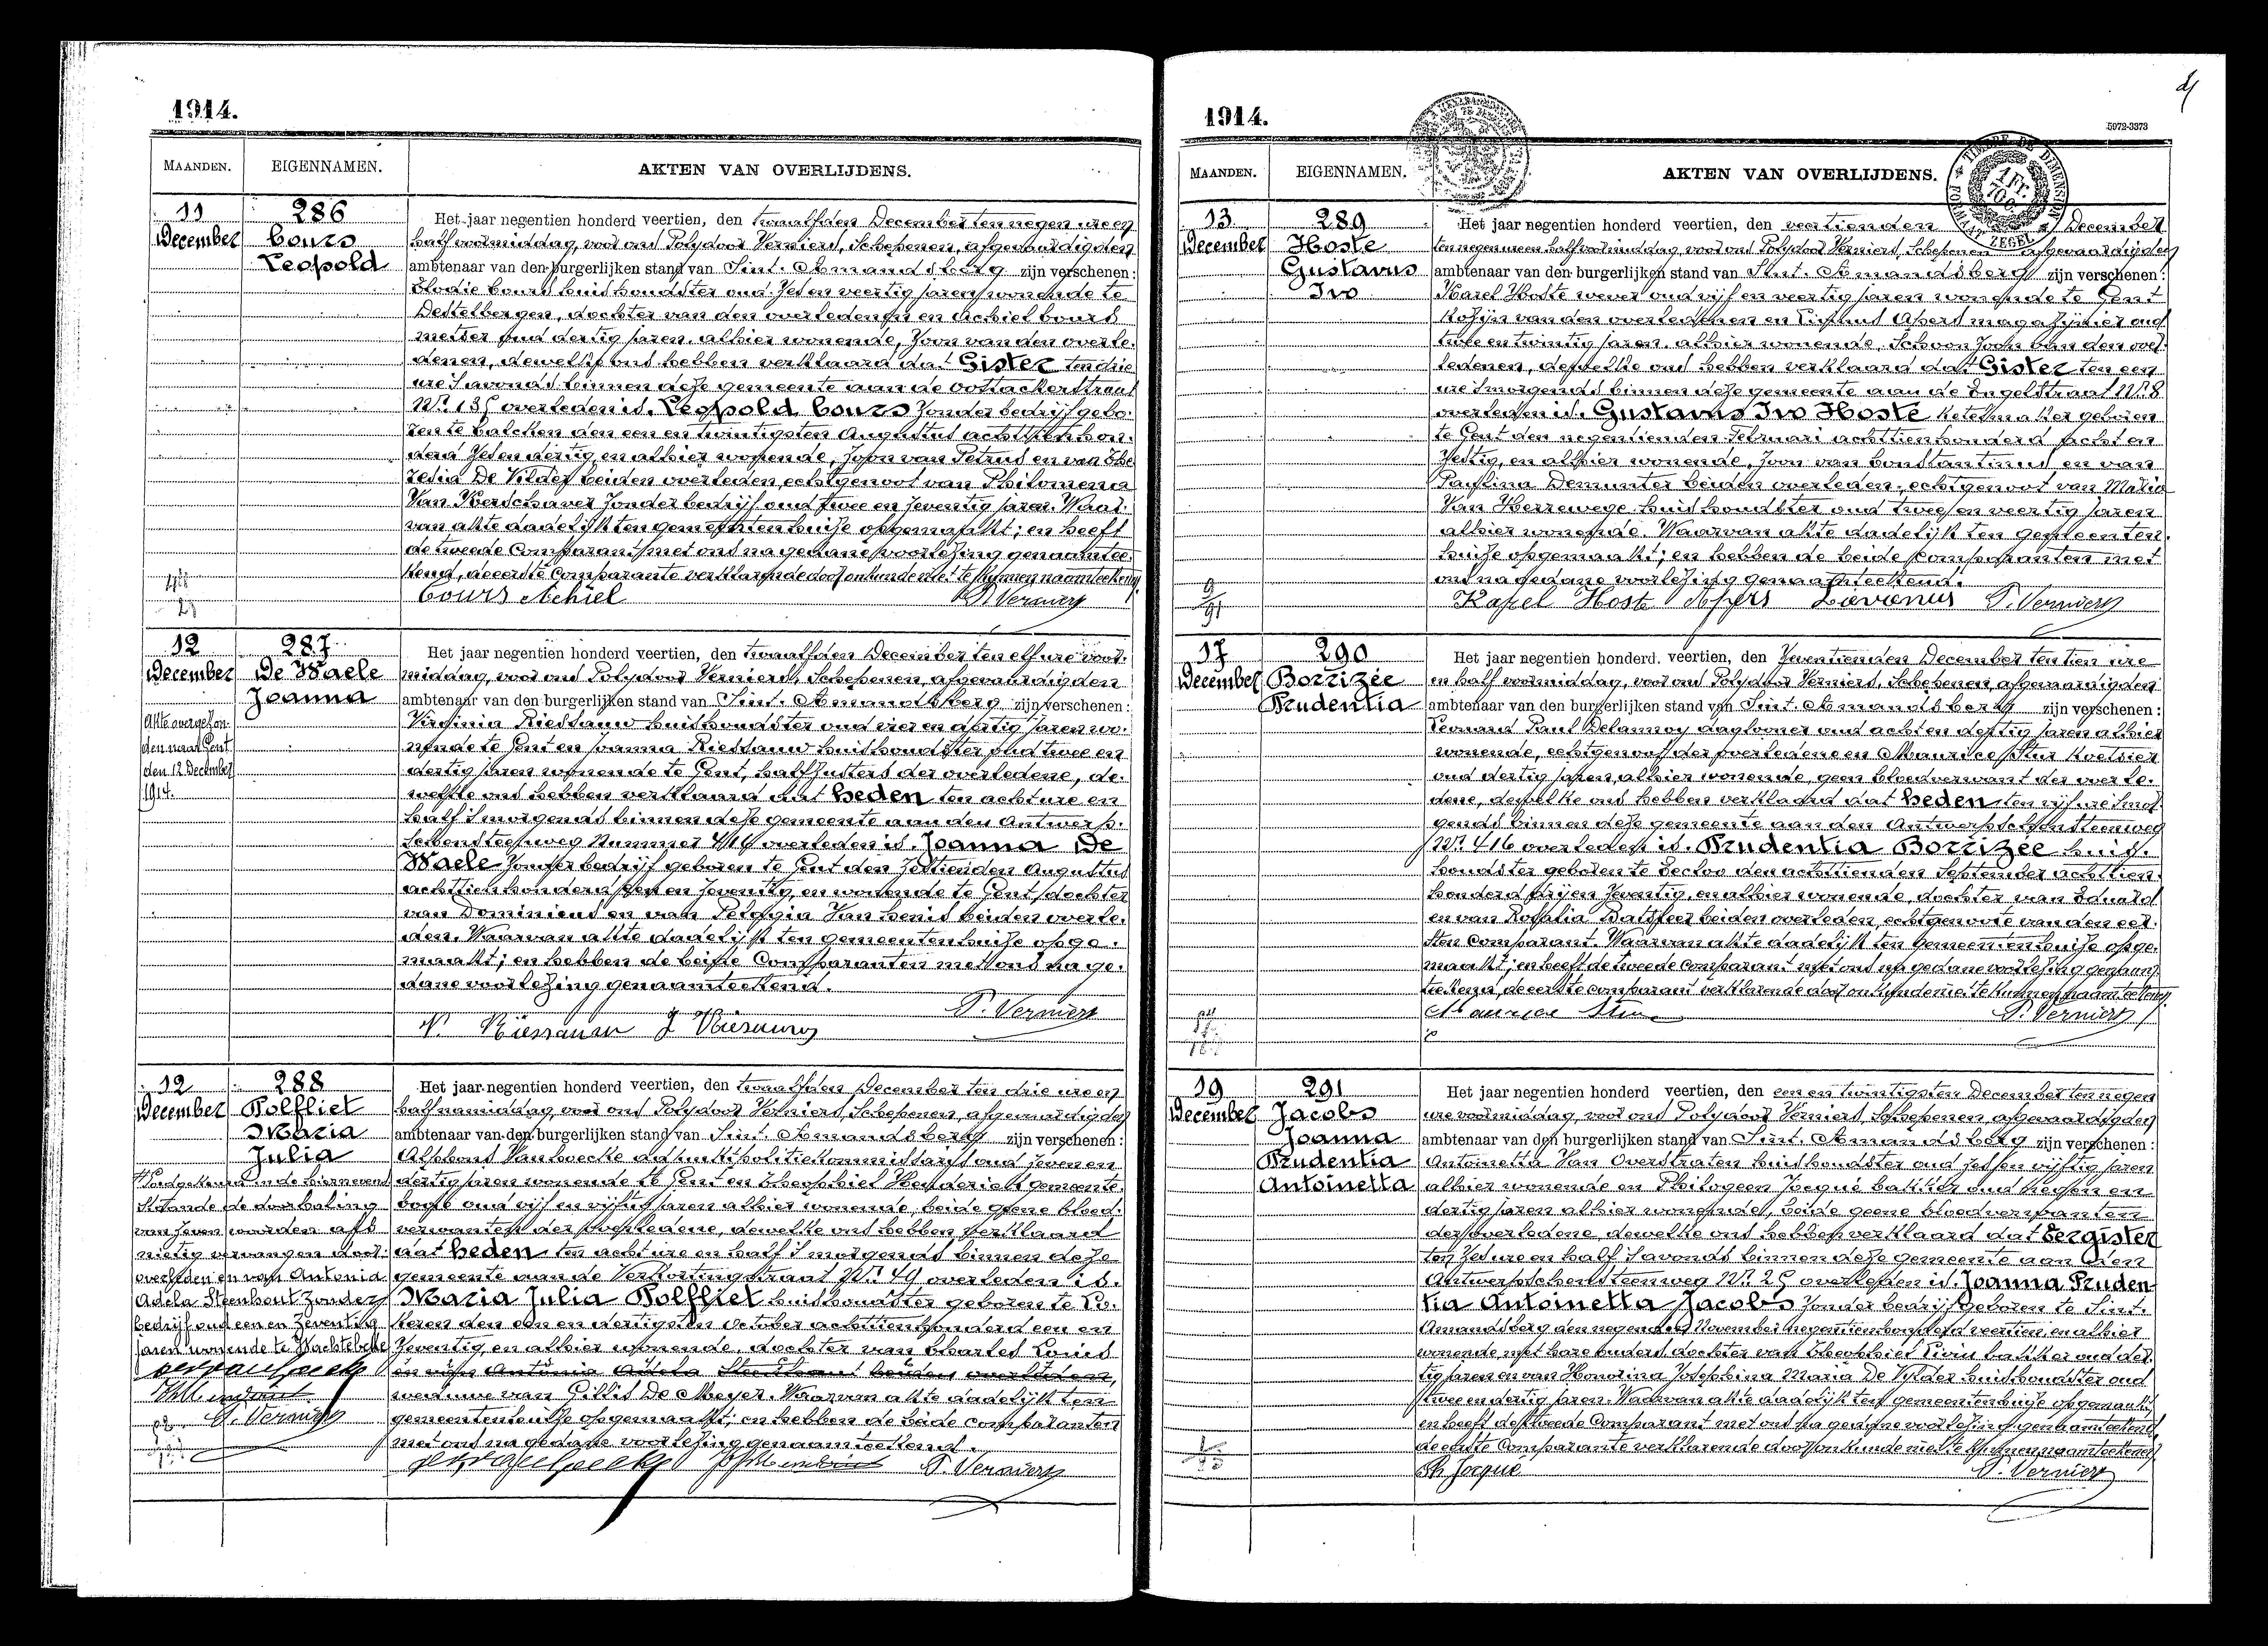 1914.
MAANDEN. EIGENNAMEN. AKTEN VAN OVERLIJDENS.
11 286 Het jaar negentien honderd veertien, den twaalfden December ten negen ure en
December Cours half voormiddag, voor ons Polydoor Verniers, Schepenen, afgevaardigden
Leopold ambtenaar van den burgerlijken stand van Sint. Amandsberg zijn verschenen:
Elodie Cours huishoudster oud zes en veertig jaren wonende te
Destelbergen, dochter van den overledenen en Achiel Cours
metser oud dertig jaren, alhier wonende, zoon van den overle-
denen, dewelke ons hebben verklaard dat Gister ten drie
ure 's avonds binnen deze gemeente aan de Oostackerstraat
Nr. overleden is, Leopold Cours zonder bedrijf gebo-
ren te Calcken den een en twintigsten Augustus achttien hon-
derd zes en dertig, en alhier wonende, zoon van Petrus en van The-
resia De Vilder beiden overleden, echtgenoot van Philomena
Van Kerschaver zonder bedrijf oud twee en zeventig jaren. Waar-
van akte dadelijk ten gemeentenhuize opgemaakt; en heeft
de tweede Comparant met ons na gedane voorlezing genaamtee-
kend, de eerste Comparante verklarende door onkunde niet te kunnen naamteekenen
Cours Achiel P. Verniers
12 287 Het jaar negentien honderd veertien, den twaalfden December ten elf ure voor-
December De Waele middag, voor ons Polydoor Verniers, Schepenen, afgevaardigden
Joanna ambtenaar van den burgerlijken stand van Sint. Amandsberg zijn verschenen:
Akte overgezon- Virginia Riessauw huishoudster oud vier en dertig jaren wo-
den naar Gent nende te Gent en Joanna Riessauw huishoudster oud twee en
den 12 December dertig jaren wonende te Gent, halfzusters der overledene, de-
1914. welke ons hebben verklaard dat heden ten acht ure en
half 's morgens binnen deze gemeente aan den Antwerp-
schensteenweg Nummer overleden is, Joanna De
Waele zonder bedrijf geboren te Gent den zestienden Augustus
achttien honderd zes en zeventig, en wonende te Gent, dochter
van Dominicus en van Pelagia Van Henis beiden overle-
den. Waarvan akte dadelijk ten gemeentenhuize opge-
maakt; en hebben de beide Comparanten met ons na ge-
dane voorlezing genaamteekend.
P. Verniers
V. Riessauw J Riessauw
12 288 Het jaar negentien honderd veertien, den twaalfden December ten drie ure en
December Polfliet half namiddag, voor ons Polydoor Verniers, Schepenen, afgevaardigden
Maria ambtenaar van den burgerlijken stand van Sint. Amandsberg zijn verschenen:
Julia Alphons Van hoecke adjunktpolitiekommissaris oud zeven en
Goedgekeurd in de hiernevens dertig jaren wonende te Gent en Theophiel Hendericks gemeente
staande de doorhaling bode oud vijf en vijftig jaren alhier wonende, beide geene bloed-
van zeven woorden als verwanten der overledene, dewelke ons hebben verklaard
nietig vervangen door: dat heden, ten acht ure en half 's morgens binnen deze
overleden en van Antonia gemeente aan de Verkortingstraat Nr. 49 overleden is.
Adela Steenhout zonder Maria Julia Polfliet huishoudster geboren te Lo-
bedrijf oud een en zeventig keren den een en dertigsten October achttien honderd een en
jaren wonende te Wachtebeke zeventig, en alhier wonende, dochter van Charles Louis
en van Antonia Adela Steenhout beiden overleden,
weduwe van Gillis De Meyer. Waarvan akte dadelijk ten
P. Verniers gemeentenhuize opgemaakt; en hebben de beide comparanten
met ons na gedane voorlezing genaamteekend.
P. Verniers
1914.
5972-3373
MAANDEN. EIGENNAMEN. AKTEN VAN OVERLIJDENS.
TIMBRE DE DIMENSION
1 Fr.
ZEGEL
13 289 Het jaar negentien honderd veertien, den veertienden December
December Hoste ten negen ure en half voormiddag, voor ons Polydoor Verniers, Schepenen afgevaardigden
Gustavus ambtenaar van den burgerlijken stand van Sint. Amandsberg zijn verschenen:
Ivo Karel Hoste wever oud vijf en veertig jaren wonende te Gent
Kozijn van den overledenen en Livinus Apers magazijnier oud
twee en twintig jaren, alhier wonende, schoonzoon van den over-
ledenen, dewelke ons hebben verklaard dat Gister ten een
ure 's morgends binnen deze gemeente aan de Engelstraat Nr. 8
overleden is, Gustavus Ivo Hoste ketelmaker geboren
te Gent den negentienden Februari achttien honderd acht en
zestig, en alhier wonende, zoon van Constantinus en van
Paulina Demunter beiden overleden, echtgenoot van Maria
Van Herrewege huishoudster oud twee en veertig jaren
alhier wonende. Waarvan akte dadelijk ten gemeenten-
huize opgemaakt; en hebben de beide Comparanten met
ons na gedane voorlezing genaamteekend.
Karel Hoste Apers Livinus P. Verniers
17 290 Het jaar negentien honderd veertien, den zeventienden December ten tien ure
December Borrizée en half voormiddag, voor ons Polydoor Verniers, Schepenen, afgevaardigden
Prudentia ambtenaar van den burgerlijken stand van Sint. Amandsberg zijn verschenen:
Leonard Paul Delannoy daglooner oud acht en dertig jaren alhier
wonende, echtgenoot der overledene en Maurice Stur koetsier
oud dertig jaren, alhier wonende, geen bloedverwant der overle-
dene, dewelke ons hebben verklaard dat heden, ten vijf ure 's mor-
gends binnen deze gemeente aan den Antwerpschensteenweg
Nr. 416 overleden is, Prudentia Borrizée huis-
houdster geboren te Eecloo den achttienden September achttien-
honderd zeventig, en alhier wonende, dochter van Eduard
en van Rosalia beiden overleden, echtgenoote van den eer-
sten comparant. Waarvan akte dadelijk ten gemeentenhuize opge-
maakt; en heeft de tweede Comparant met ons na gedane voorlezing genaam-
teekend, de eerste comparant verklarende door onkunde niet te kunnen naamteekenen
Maurice P. Verniers
19 291 Het jaar negentien honderd veertien, den een en twintigsten December ten negen
December Jacobs ure voormiddag, voor ons Polydoor Verniers, Schepenen afgevaardigden
Joanna ambtenaar van den burgerlijken stand van Sint. Amandsberg zijn verschenen:
Prudentia Antoinetta Van Overstraten huishoudster oud zes en vijftig jaren
Antoinetta alhier wonende en Philogeen Jocqué bakker oud en
dertig jaren alhier wonende, beide geene bloedverwanten
der overledene dewelke ons hebben verklaard dat Eergister
ten zes ure en half 's avonds binnen deze gemeente aan den
Antwerpschensteenweg Nr. overleden is, Joanna Pruden-
tia Antoinetta Jacobs zonder bedrijf geboren te Sint.
Amandsberg den negenden November negentien honderd veertien, en alhier
wonende met hare ouders, dochter van Theophiel Livin bakker oud der-
tig jaren en van Honorina Josephina Maria De Vylder huishoudster oud
twee en dertig jaren. Waarvan akte dadelijk ten gemeentenhuize opgemaakt,
en heeft de tweede Comparant met ons na gedane voorlezing genaamteekend
de eerste Comparante verklarende door onkunde niet te kunnen naamteekenen
Ph Jocqué P. Verniers